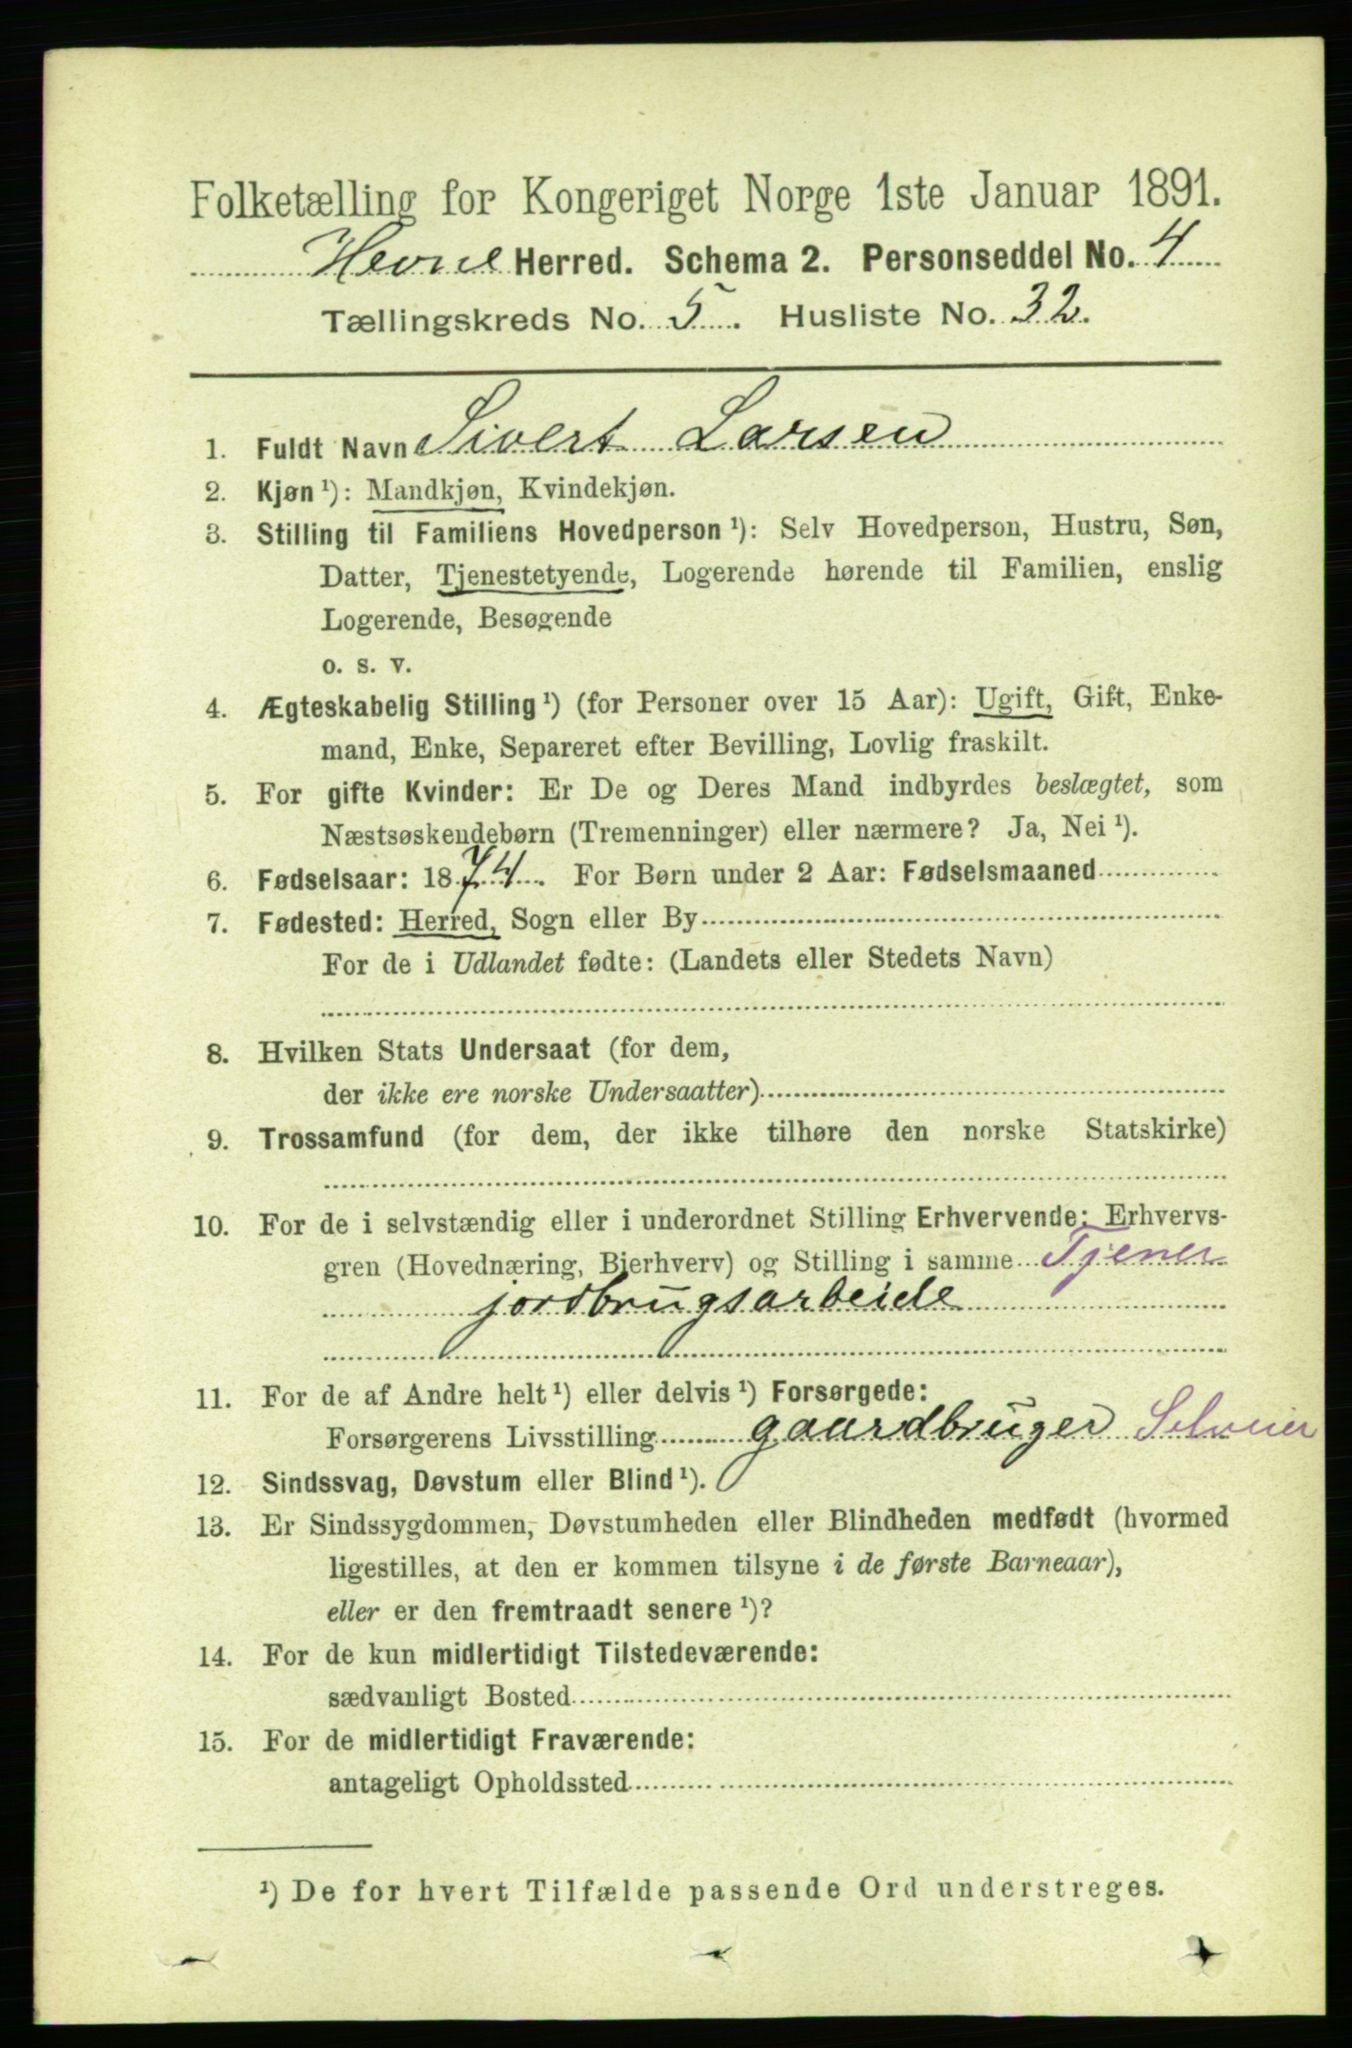 Folketælling for Kongeriget Norge 1ste Januar 1891.
Hevne Herred. Schema 2. Personseddel No. 4
Tællingskreds No. 5. Husliste No. 32.
1. Fuldt Navn Sivert Larsen
2. Kjøn ¹): Mandkjøn, Kvindekjøn.
3. Stilling til Familiens Hovedperson ¹): Selv Hovedperson, Hustru, Søn,
Datter, Tjenestetyende, Logerende hørende til Familien, enslig
Logerende, Besøgende
o. s. v.
4. Ægteskabelig Stilling ¹) (for Personer over 15 Aar): Ugift, Gift, Enke-
mand, Enke, Separeret efter Bevilling, Lovlig fraskilt.
5. For gifte Kvinder: Er De og Deres Mand indbyrdes beslægtet, som
Næstsøskendebørn (Tremenninger) eller nærmere? Ja, Nei ¹).
6. Fødselsaar: 1874. For Børn under 2 Aar: Fødselsmaaned
7. Fødested: Herred, Sogn eller By
For de i Udlandet fødte: (Landets eller Stedets Navn)
8. Hvilken Stats Undersaat (for dem,
der ikke ere norske Undersaatter)
9. Trossamfund (for dem, der ikke tilhøre den norske Statskirke)
10. For de i selvstændig eller i underordnet Stilling Erhvervende: Erhvervs-
gren (Hovednæring, Bierhverv) og Stilling i samme Tjener
jordbrugsarbeide
11. For de af Andre helt ¹) eller delvis ¹) Forsørgede:
Forsørgerens Livsstilling gaardbruger Selveier
12. Sindssvag, Døvstum eller Blind ¹).
13. Er Sindssygdommen, Døvstumheden eller Blindheden medfødt (hvormed
ligestilles, at den er kommen tilsyne i de første Barneaar),
eller er den fremtraadt senere ¹)?
14. For de kun midlertidigt Tilstedeværende:
sædvanligt Bosted
15. For de midlertidigt Fraværende:
antageligt Opholdssted
¹) De for hvert Tilfælde passende Ord understreges.